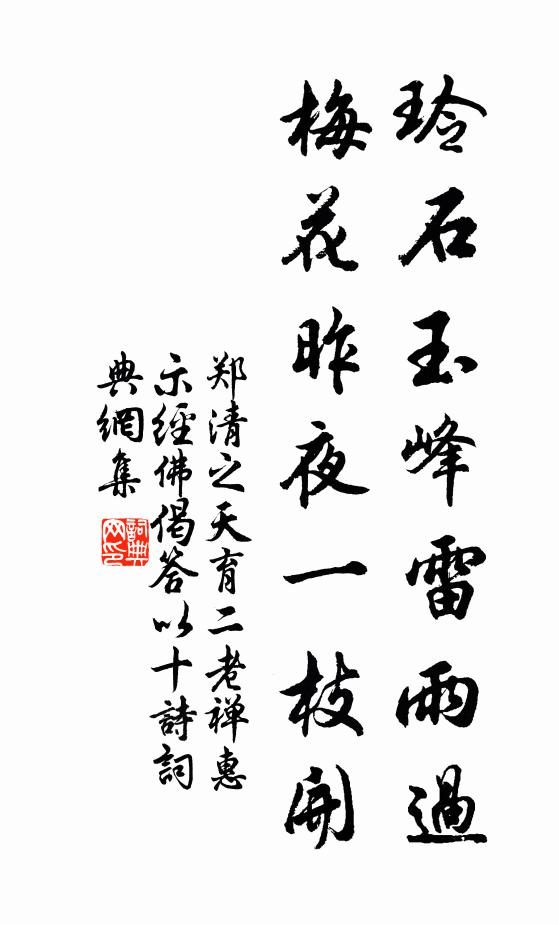 玲石玉峰雷雨過
梅花昨夜一枝開
郑清之天育二老禅惠
示經佛偈答以十詩詞
典網集
詞典网印